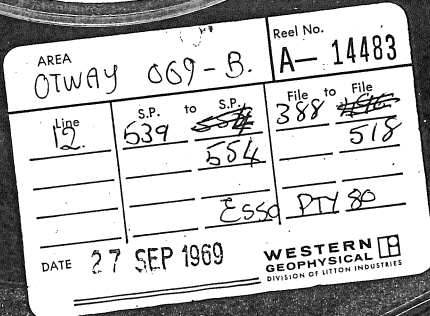 AREA
OTWAY 069-B.
Reel No.
A- 14483
Line S.P. to S.P. File to File
12. 539 388
554 518
Esso PTY 80
DATE 27 SEP 1969
WESTERN
GEOPHYSICAL
DIVISION OF LITTON INDUSTRIES